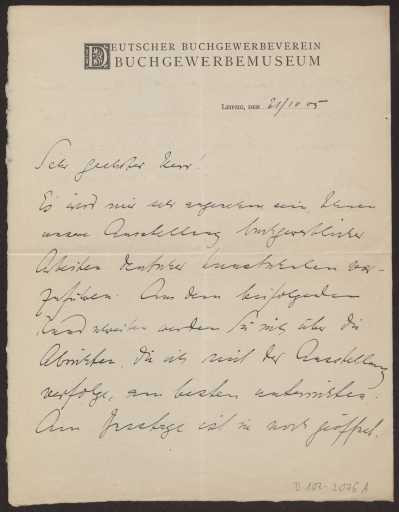 DEUTSCHER BUCHGEWERBEVEREIN
BUCHGEWERBEMUSEUM
LEIPZIG, DEN 21/10 05
Sehr geehrter Herr!
Es wird mir sehr angenehm sein, Ihnen
unsere Ausstellung buchgewerblicher
Arbeiten deutscher Kunstschulen vor-
zuführen. Aus dem beifolgenden
Rundschreiben werden Sie sich über die
Absichten, die ich mit der Ausstellung
verfolge, am besten unterrichten.
Am Freitage ist sie noch geöffnet.
D 102-2076 A